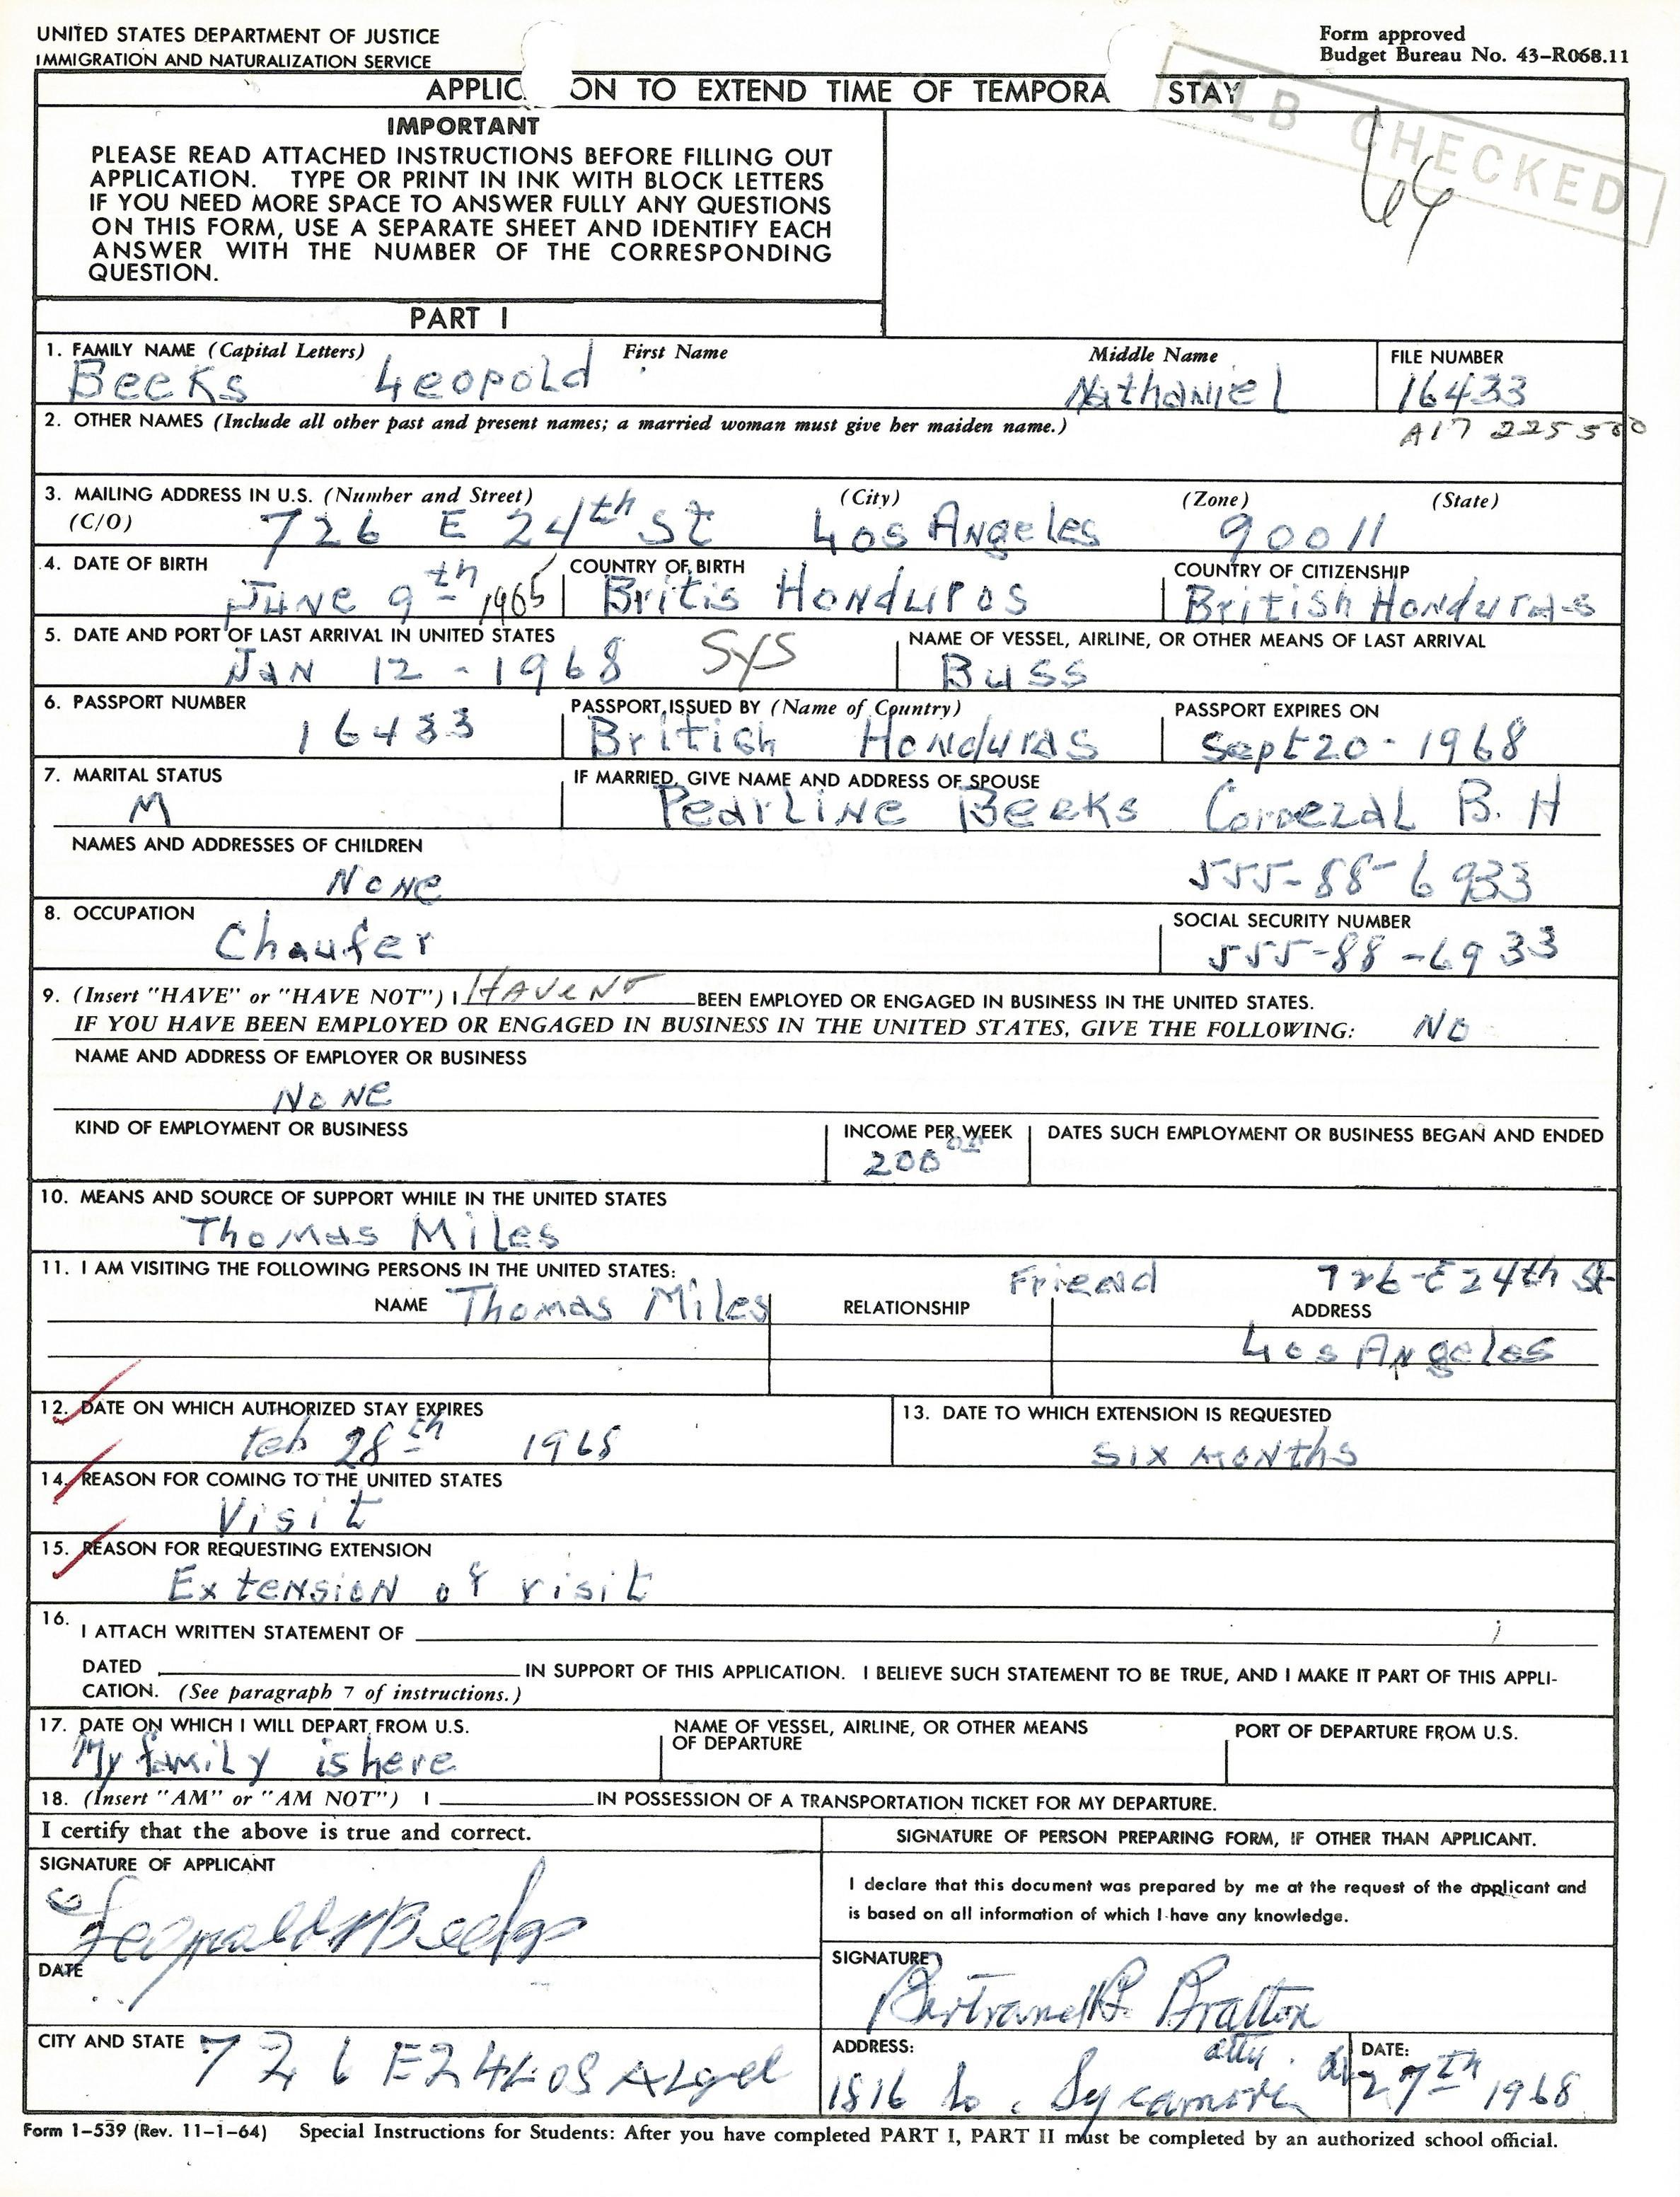 UNITED STATES DEPARTMENT OF JUSTICE
IMMIGRATION AND NATURALIZATION SERVICE
Form approved
Budget Bureau No. 43-R068.11
APPLIC ON TO EXTEND TIME OF TEMPORA STAY
CLB CHECKED
64
IMPORTANT
PLEASE READ ATTACHED INSTRUCTIONS BEFORE FILLING OUT
APPLICATION. TYPE OR PRINT IN INK WITH BLOCK LETTERS
IF YOU NEED MORE SPACE TO ANSWER FULLY ANY QUESTIONS
ON THIS FORM, USE A SEPARATE SHEET AND IDENTIFY EACH
ANSWER WITH THE NUMBER OF THE CORRESPONDING
QUESTION.
PART I
1. FAMILY NAME (Capital Letters) First Name Middle Name FILE NUMBER
Beeks Leopold Nathaniel 16433
2. OTHER NAMES (Include all other past and present names; a married woman must give her maiden name.) A17 225 500
3. MAILING ADDRESS IN U.S. (Number and Street) (City) (Zone) (State)
(C/O) 726 E 24th St Los Angeles 90011
4. DATE OF BIRTH COUNTRY OF BIRTH COUNTRY OF CITIZENSHIP
June 9th Britis Honduros British Honduras
5. DATE AND PORT OF LAST ARRIVAL IN UNITED STATES NAME OF VESSEL, AIRLINE, OR OTHER MEANS OF LAST ARRIVAL
JAN 12 - 1968 SYS Buss
6. PASSPORT NUMBER PASSPORT ISSUED BY (Name of Country) PASSPORT EXPIRES ON
16433 British Honduras Sept 20 - 1968
7. MARITAL STATUS IF MARRIED, GIVE NAME AND ADDRESS OF SPOUSE
M Pearline Beeks Corozal B. H
NAMES AND ADDRESSES OF CHILDREN
None 555-88-6933
8. OCCUPATION SOCIAL SECURITY NUMBER
Chaufer 555-88-6933
9. (Insert "HAVE" or "HAVE NOT") I HAVE NO BEEN EMPLOYED OR ENGAGED IN BUSINESS IN THE UNITED STATES.
IF YOU HAVE BEEN EMPLOYED OR ENGAGED IN BUSINESS IN THE UNITED STATES, GIVE THE FOLLOWING: NO
NAME AND ADDRESS OF EMPLOYER OR BUSINESS
NONE
KIND OF EMPLOYMENT OR BUSINESS INCOME PER WEEK DATES SUCH EMPLOYMENT OR BUSINESS BEGAN AND ENDED
200 00
10. MEANS AND SOURCE OF SUPPORT WHILE IN THE UNITED STATES
Thomas Miles
11. I AM VISITING THE FOLLOWING PERSONS IN THE UNITED STATES: Friend 726-E 24th St
NAME Thomas Miles RELATIONSHIP ADDRESS
Los Angeles
12. DATE ON WHICH AUTHORIZED STAY EXPIRES 13. DATE TO WHICH EXTENSION IS REQUESTED
Feb 28th 1968 six months
14. REASON FOR COMING TO THE UNITED STATES
Visit
15. REASON FOR REQUESTING EXTENSION
Extension of visit
16. I ATTACH WRITTEN STATEMENT OF
DATED IN SUPPORT OF THIS APPLICATION. I BELIEVE SUCH STATEMENT TO BE TRUE, AND I MAKE IT PART OF THIS APPLI-
CATION. (See paragraph 7 of instructions.)
17. DATE ON WHICH I WILL DEPART FROM U.S. NAME OF VESSEL, AIRLINE, OR OTHER MEANS OF DEPARTURE PORT OF DEPARTURE FROM U.S.
My family is here
18. (Insert "AM" or "AM NOT") I IN POSSESSION OF A TRANSPORTATION TICKET FOR MY DEPARTURE.
I certify that the above is true and correct. SIGNATURE OF PERSON PREPARING FORM, IF OTHER THAN APPLICANT.
SIGNATURE OF APPLICANT
I declare that this document was prepared by me at the request of the applicant and
is based on all information of which I have any knowledge.
Leopold N Beeks
DATE
SIGNATURE
Bratton
atty.
CITY AND STATE 726 E24 LOS ALgel
ADDRESS: DATE:
1816 So. Sycamore 27th 1968
Form I-539 (Rev. 11-1-64) Special Instructions for Students: After you have completed PART I, PART II must be completed by an authorized school official.